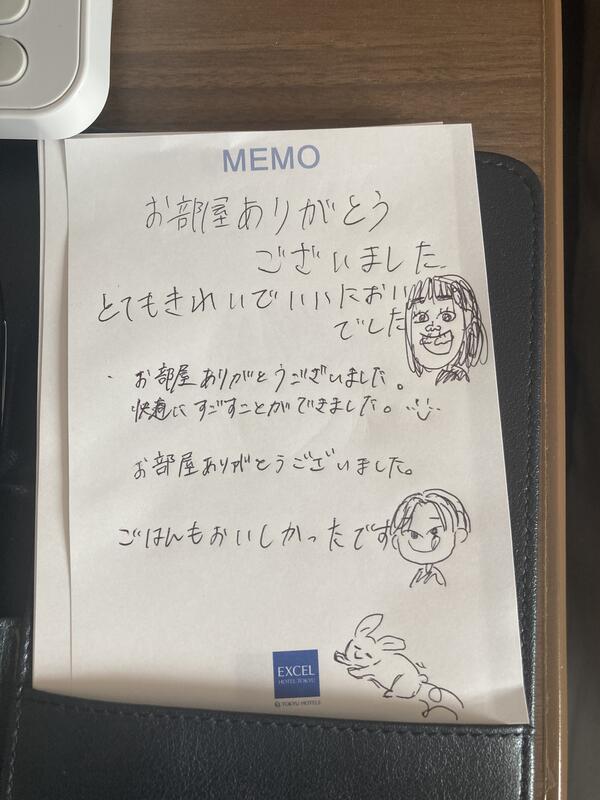 MEMO
お部屋ありがとう
ございました
とてもきれいでいいにおい
でした
お部屋ありがとうございました。
快適にすごすことができました。
お部屋ありがとうございました。
ごはんもおいしかったです
EXCEL
HOTEL TOKYU
TOKYU HOTELS